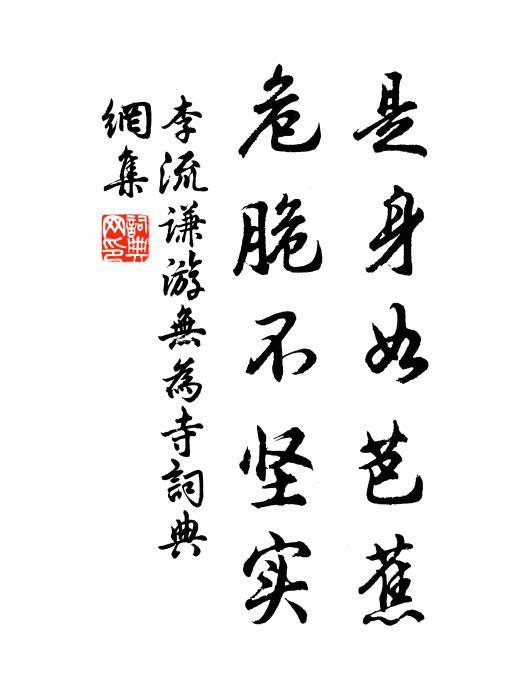 是身如芭蕉
危脆不坚实
李流谦游無為寺詞典
網集
詞典網印